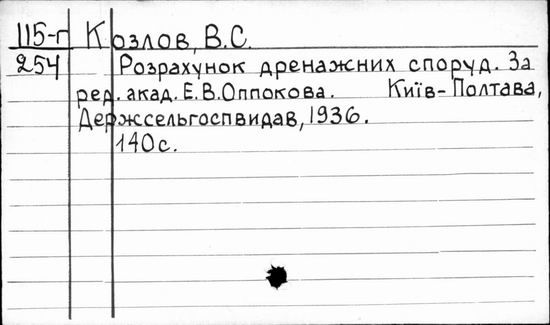 115-г Козлов, В.С.
254 Розрахунок дренажних споруд. За
ред. акад. Е.В.Оппокова. Київ-Полтава,
Держсельгоспвидав, 1936.
140с.